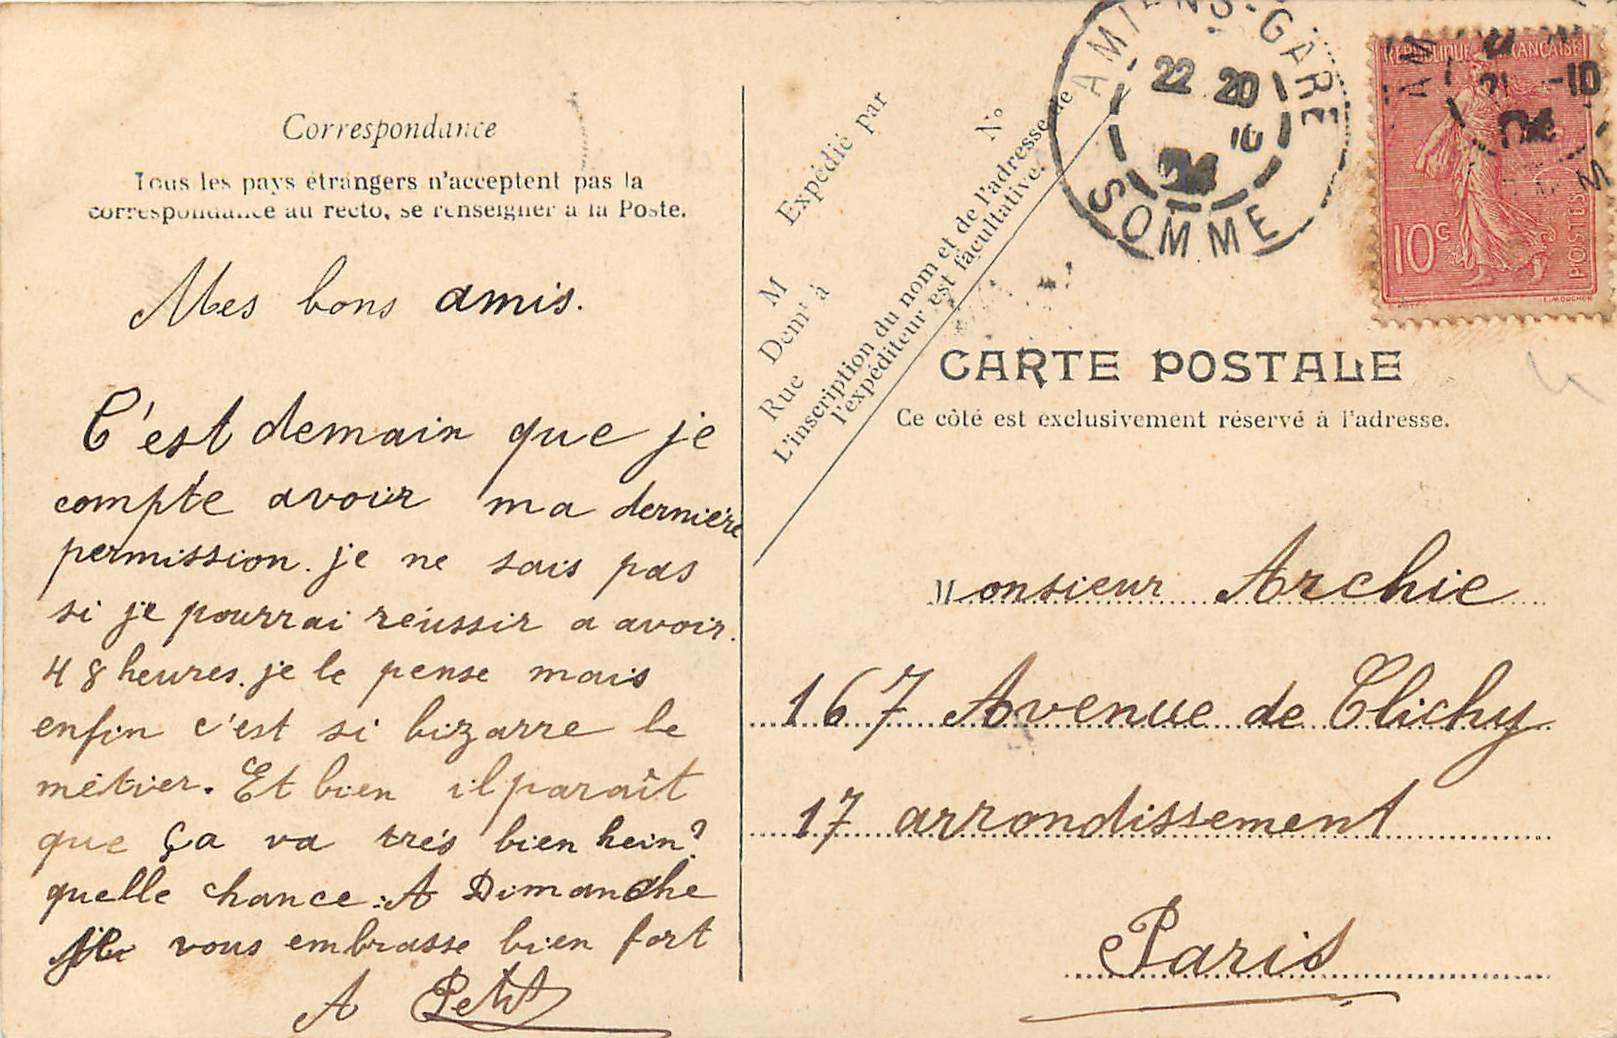 Correspondance
Tous les pays étrangers n'acceptent pas la
correspondance au recto, se renseigner à la Poste.
Mes bons amis.
C'est demain que je
compte avoir ma dernière
permission. je ne sais pas
si je pourrai réussir a avoir
48 heures. je le pense mais
enfin c'est si bizarre le
métier. Et bien il paraît
que ça va très bien hein?
quelle chance. A Dimanche
je vous embrasse bien fort
A Petit
Expédié par
M
Demt à
Rue
N°
L'inscription du nom et de l'adresse de
l'expéditeur est facultative.
AMIENS-GARE
22 20
10
04
SOMME
REPUBLIQUE FRANÇAISE
10c
POSTES
E. MOUCHON
AM
21 -10
04
M
CARTE POSTALE
Ce côté est exclusivement réservé à l'adresse.
Monsieur Archie
167 Avenue de Clichy
17 arrondissement
Paris